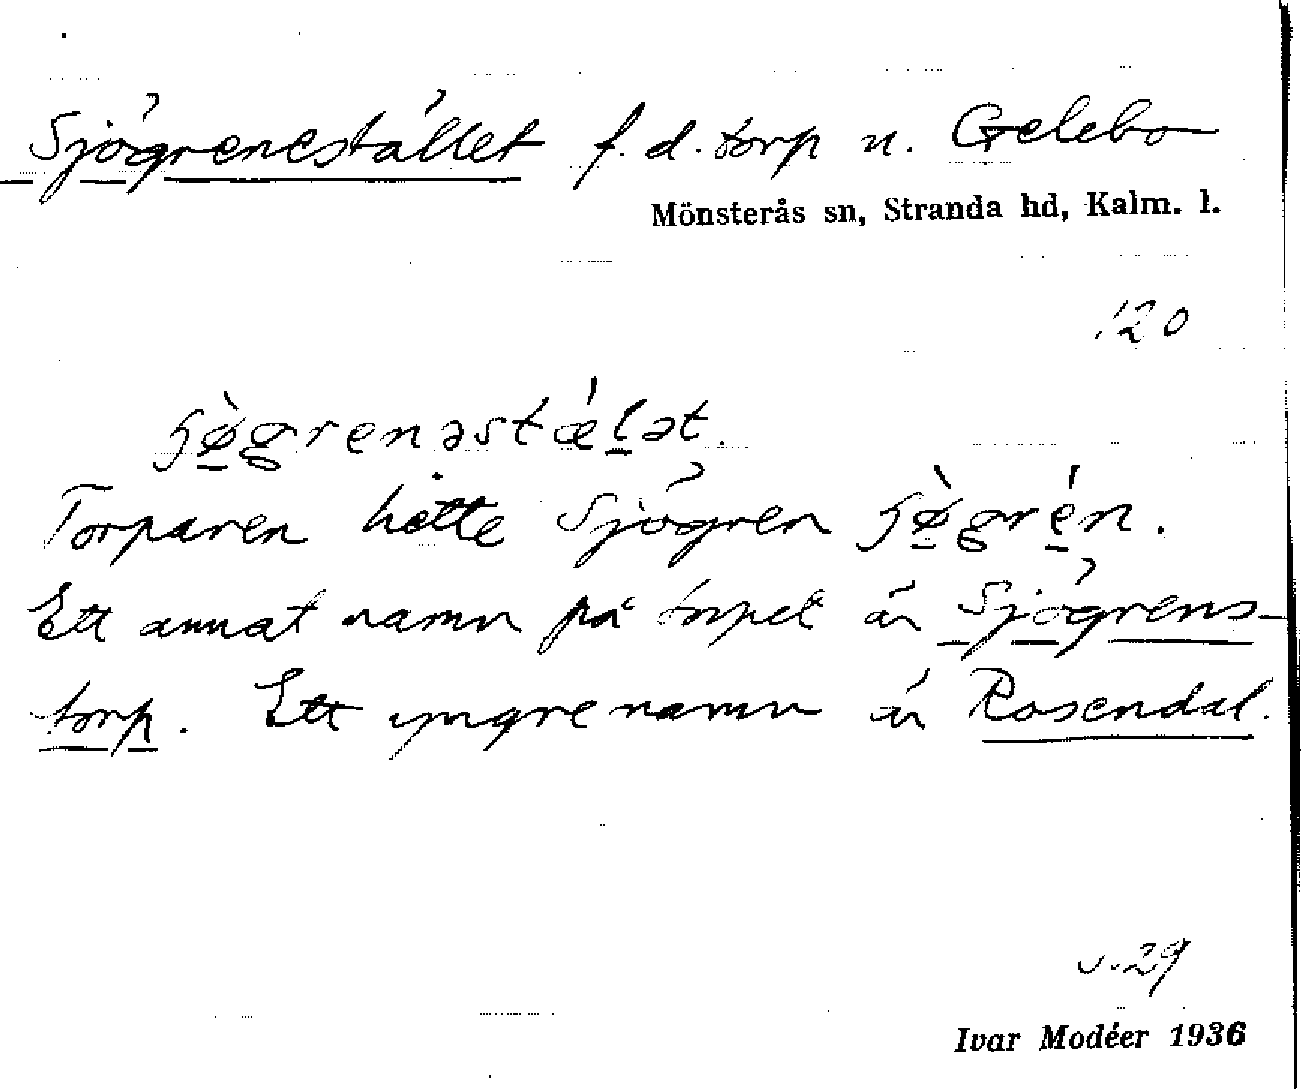 Sjögrenestället f.d. torp u. Gelebo
Mönsterås sn, Stranda hd, Kalm. l.
120
ʃø̀grenəstǽlət.
Torparen hette Sjögren ʃø̀grén.
Ett annat namn på torpet är Sjögrens-
torp. Ett yngre namn är Rosendal.
29
Ivar Modéer 1936